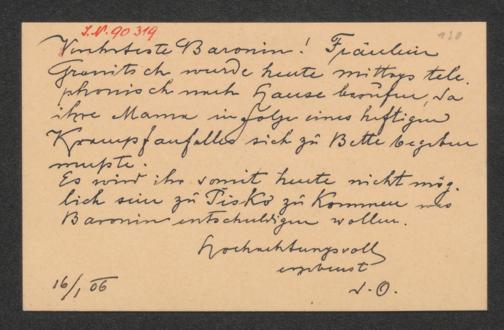 I.N. 90 319
130
Verehrteste Baronin! Fräulein
Granitsch wurde heute mittags tele-
phonisch nach Hause berufen, da
ihre Mama infolge eines heftigen
Krampfanfalles sich zu Bette begeben
mußte.
Es wird ihr somit heute nicht mög-
lich sein zu Tisko zu kommen was
Baronin entschuldigen wollen.
Hochachtungsvoll
ergebenst
16/1 06
v. O.